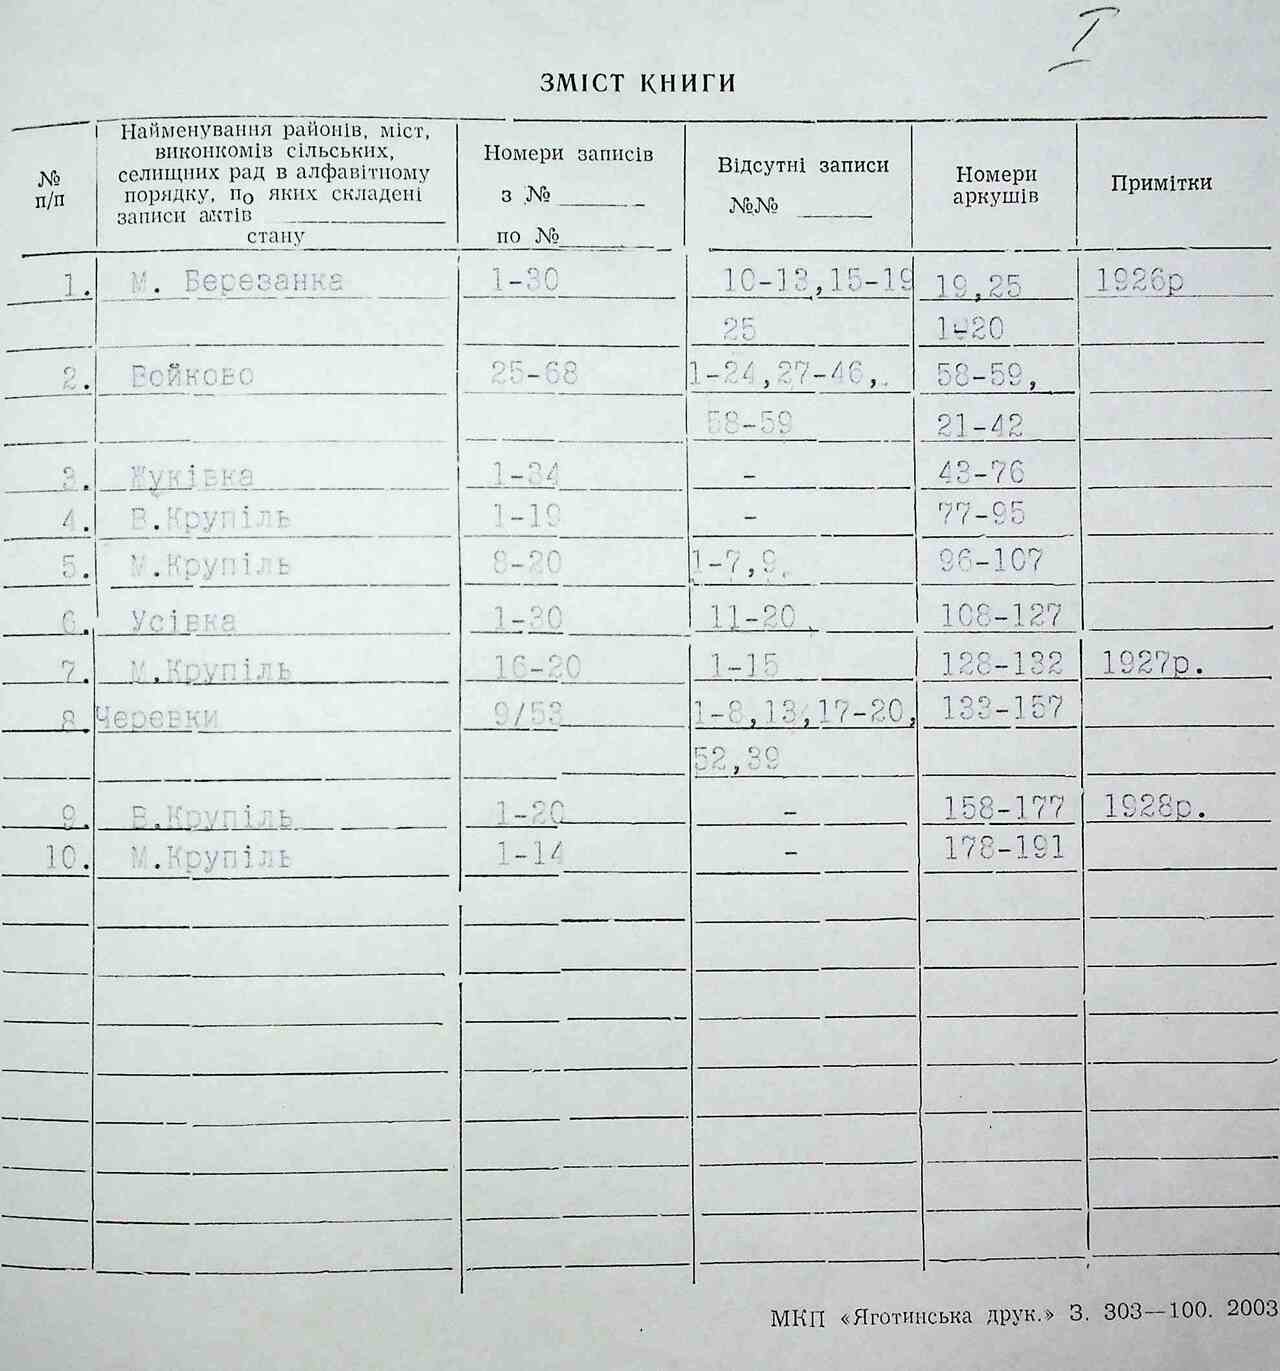 I
ЗМІСТ КНИГИ
№ п/п
Найменування районів, міст,
виконкомів сільських,
селищних рад в алфавітному
порядку, по яких складені
записи актів
стану
Номери записів
з №
по №
Відсутні записи
№№
Номери
аркушів
Примітки
1. М. Березанка 1-30 10-13,15-19 19,25 1926р
25 1-20
2. Войково 25-68 1-24,27-46, 58-59,
58-59 21-42
3. Жуківка 1-34 - 43-76
4. В.Крупіль 1-19 - 77-95
5. М.Крупіль 8-20 1-7,9. 96-107
6. Усівка 1-30 11-20. 108-127
7. М.Крупіль 16-20 1-15 128-132 1927р.
8 Черевки 9/53 1-8,13,17-20, 133-157
52,39
9. В.Крупіль 1-20 - 158-177 1928р.
10. М.Крупіль 1-14 - 178-191
МКП «Яготинська друк.» З. 303—100. 2003